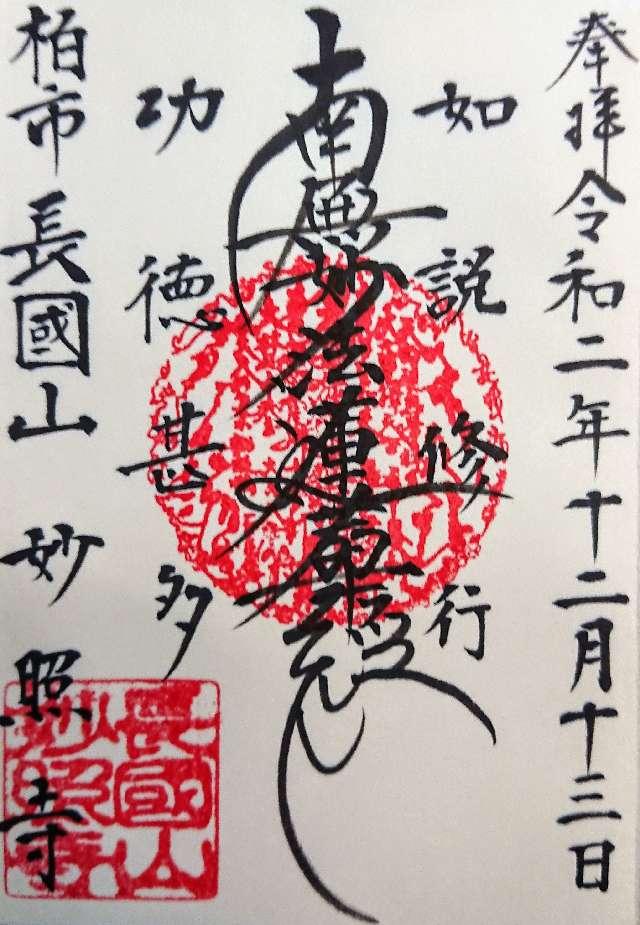 奉拝令和二年十二月十三日
如説修行
南無妙法蓮華経
功徳甚多
柏市長國山妙照寺
長國山
妙照寺